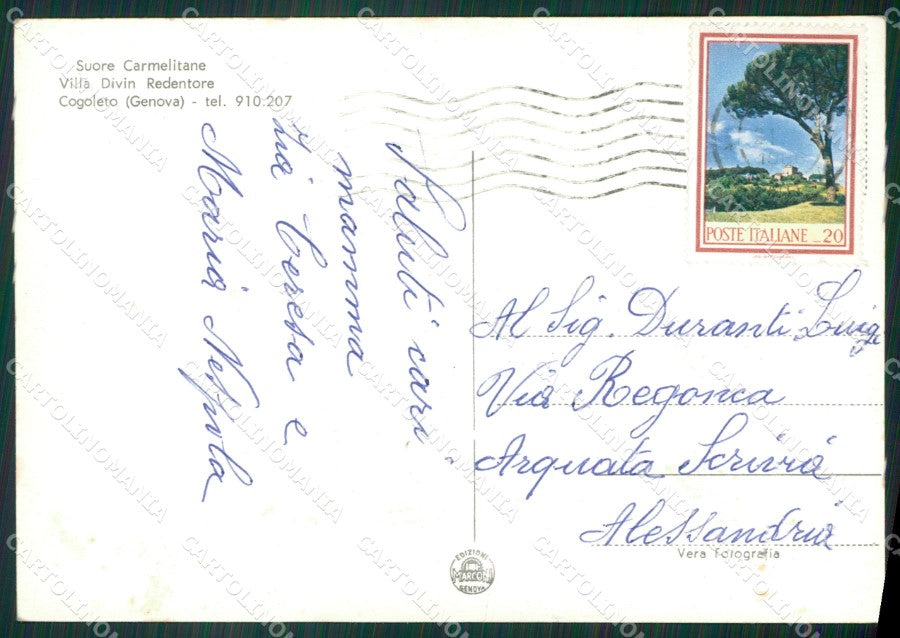 Suore Carmelitane
Villa Divin Redentore
Cogoleto (Genova) - tel. 910.207
POSTE ITALIANE L. 20
Saluti cari
mamma
zia Teresa e
Maria Nespola
Al Sig. Duranti Luigi
Via Regonca
Arquata Scrivia
Alessandria
Vera Fotografia
EDIZIONI
MARCONI
GENOVA
CARTOLINOMANIA